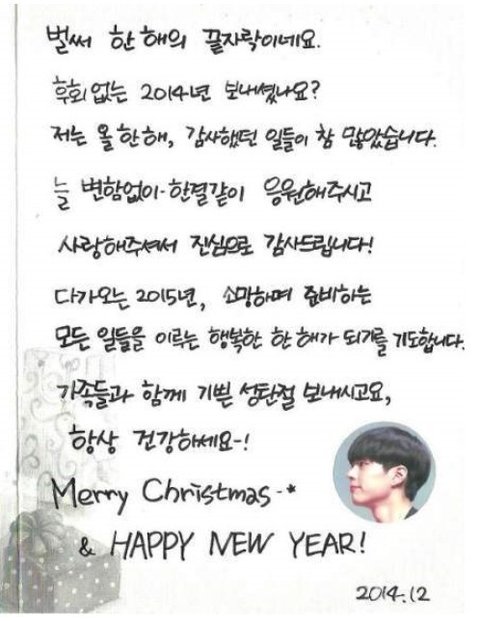 벌써 한 해의 끝자락이네요.
후회없는 2014년 보내셨나요?
저는 올 한해, 감사했던 일들이 참 많았습니다.
늘 변함없이·한결같이 응원해주시고
사랑해주셔서 진심으로 감사드립니다!
다가오는 2015년, 소망하며 준비하는
모든 일들을 이루는 행복한 한 해가 되기를 기도합니다.
가족들과 함께 기쁜 성탄절 보내시고요,
항상 건강하세요~!
Merry Christmas··*
& HAPPY NEW YEAR!
2014.12